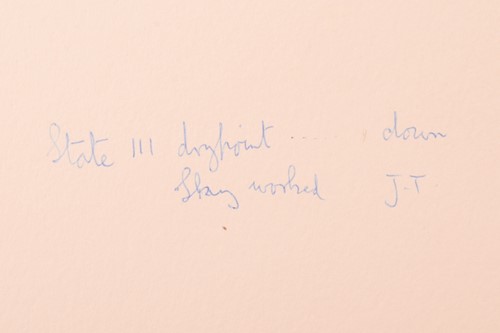 State III drypoint ... down
worked J.T